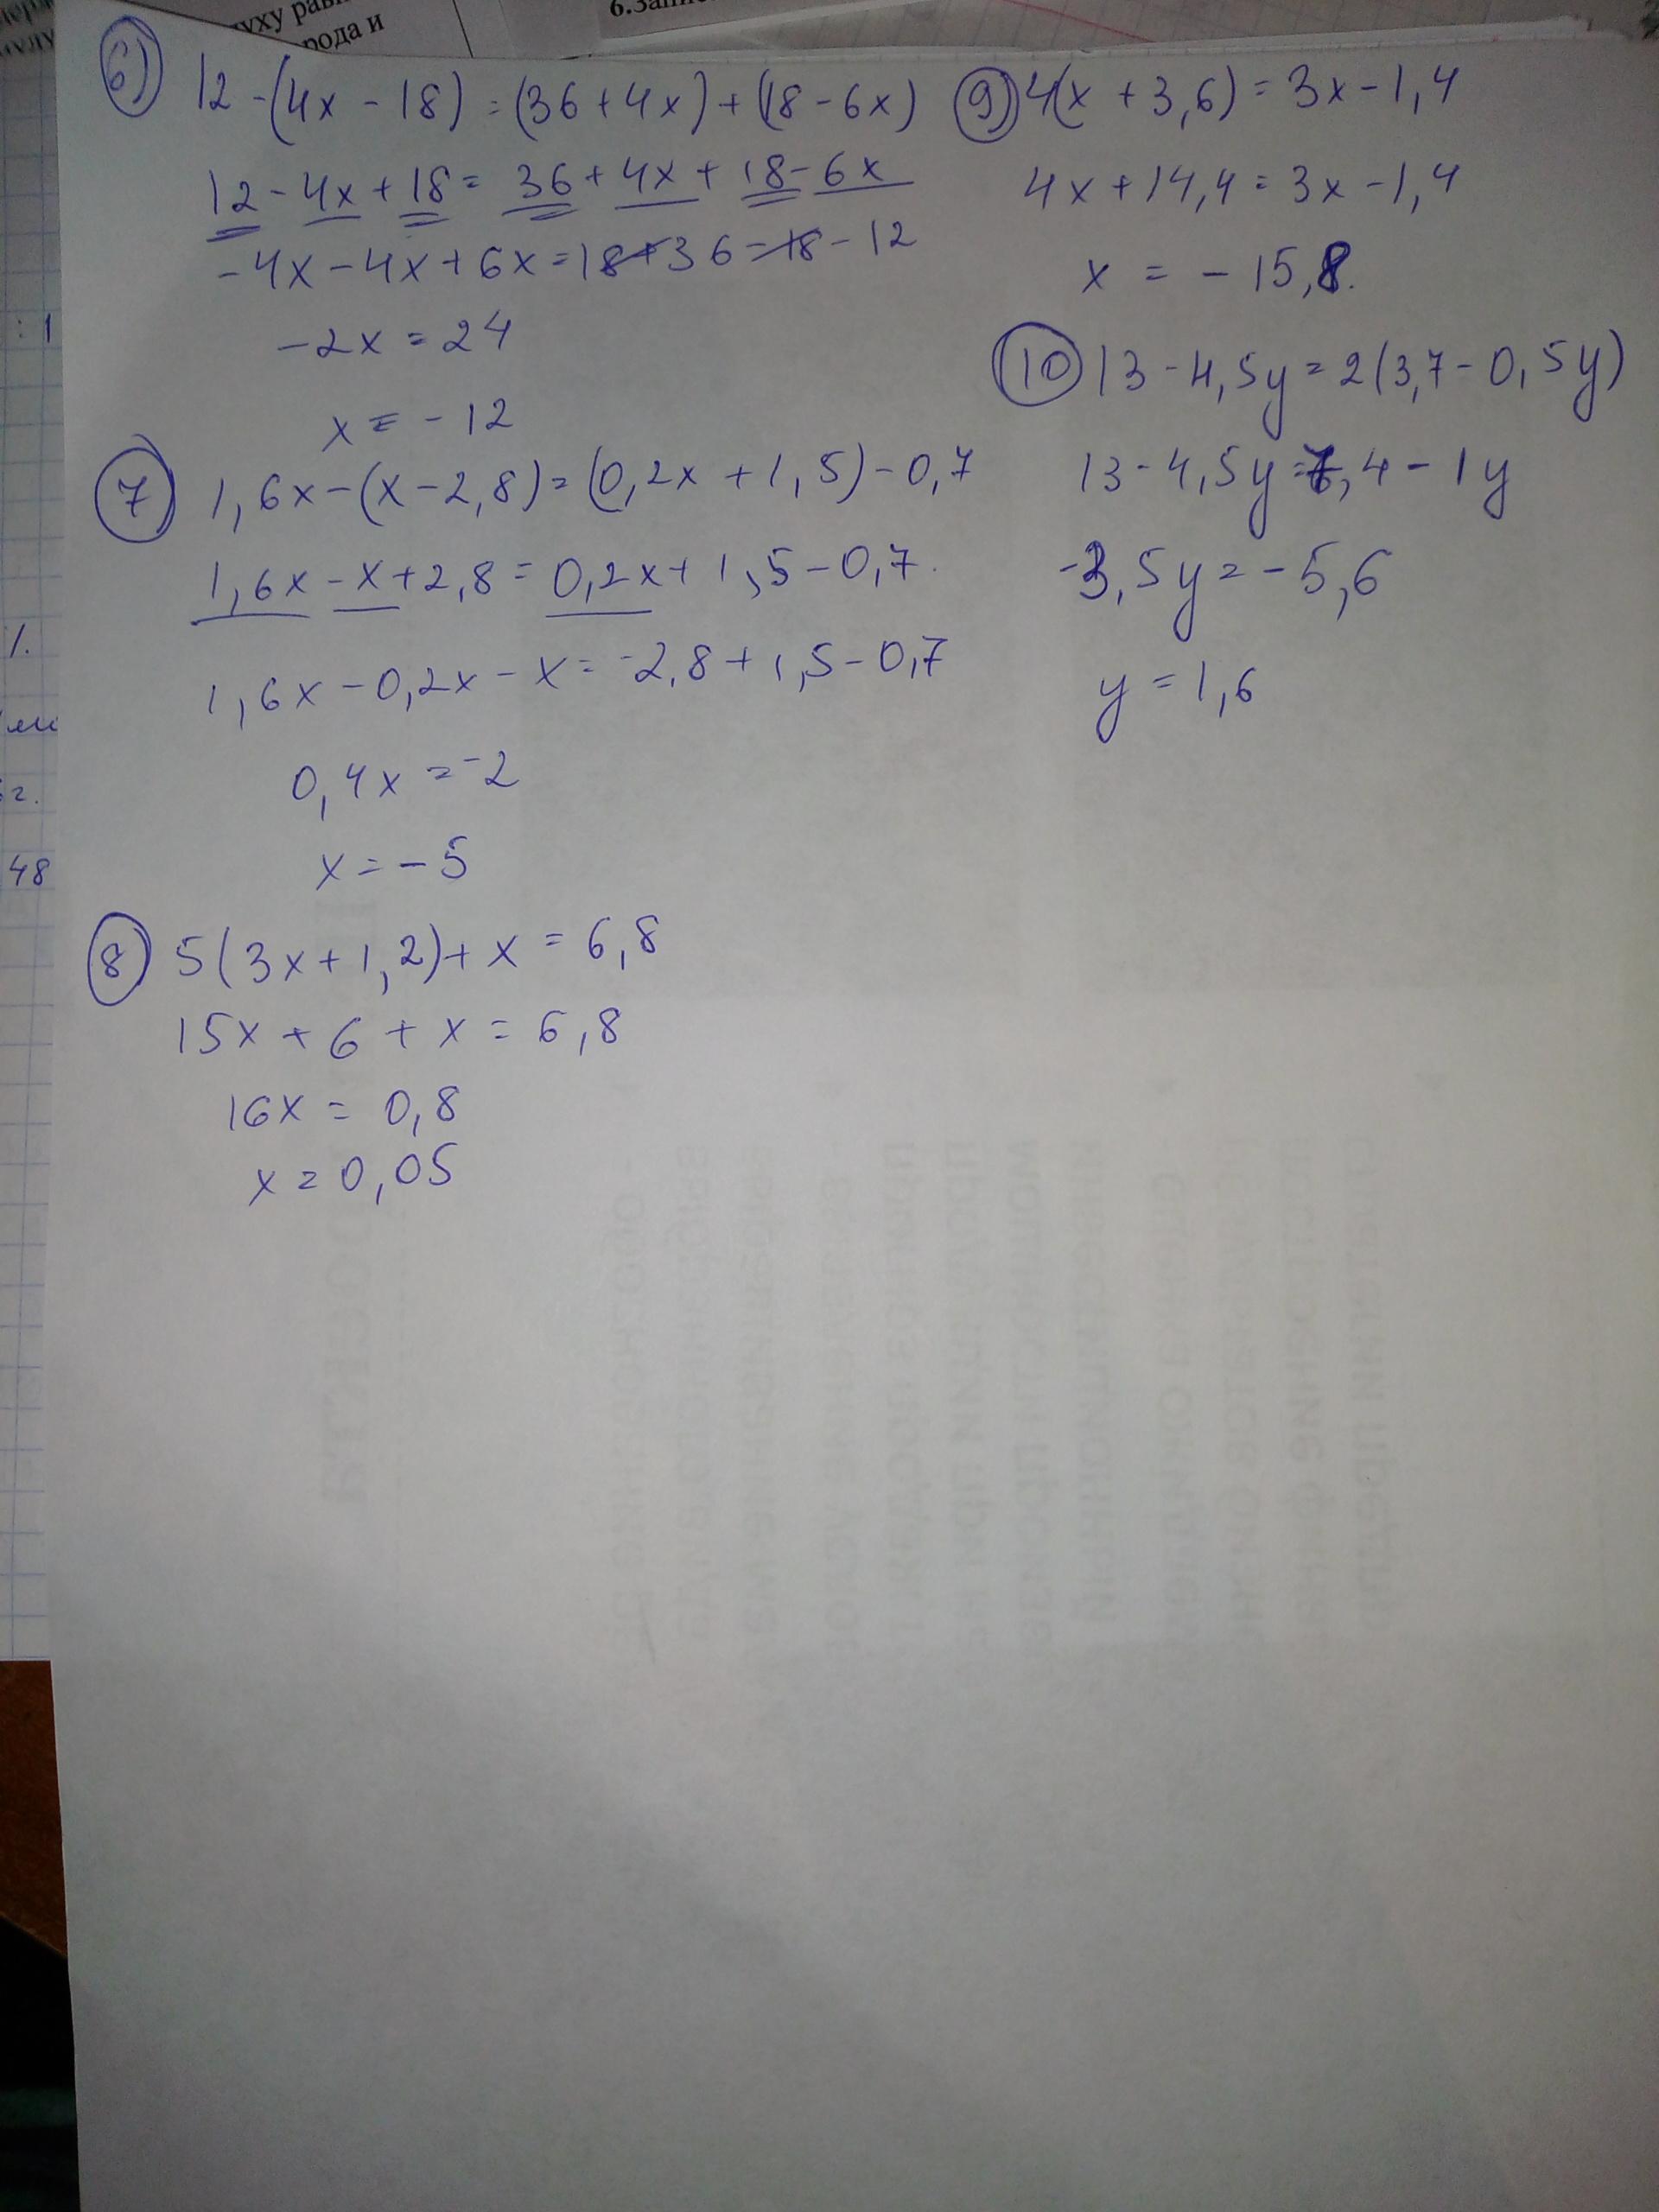 уху рав
рода и
6.Запи
6) 12 - (4x - 18) = (36 + 4x) + (18 - 6x)
12 - 4x + 18 = 36 + 4x + 18 - 6x
- 4x - 4x + 6x = 18 + 36 - 18 - 12
- 2x = 24
x = - 12
7 1,6x - (x - 2,8) = (0,2x + 1,5) - 0,7
1,6x - x + 2,8 = 0,2x + 1,5 - 0,7
1,6x - 0,2x - x = -2,8 + 1,5 - 0,7
0,4x = -2
x = - 5
8 5(3x + 1,2) + x = 6,8
15x + 6 + x = 6,8
16x = 0,8
x = 0,05
9) 4(x + 3,6) = 3x - 1,4
4x + 14,4 = 3x - 1,4
x = - 15,8.
10 13 - 4,5y = 2(3,7 - 0,5y)
13 - 4,5y = 7,4 - 1y
-3,5y = - 5,6
y = 1,6
: 1
1.
г.
48